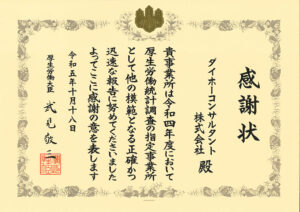 感謝状
ダイホーコンサルタント
株式会社 殿
貴事業所は令和四年度において
厚生労働統計調査の指定事業所
として他の模範となる正確かつ
迅速な報告に努めてくださいました
よってここに感謝の意を表します
令和五年十月十八日
厚生労働大臣 武見敬三